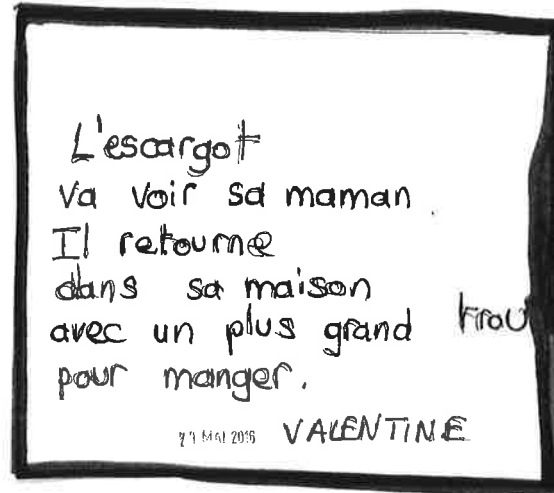 L'escargot
va voir sa maman
Il retourne
dans sa maison
avec un plus grand trou
pour manger.
MAI 2016 VALENTINE